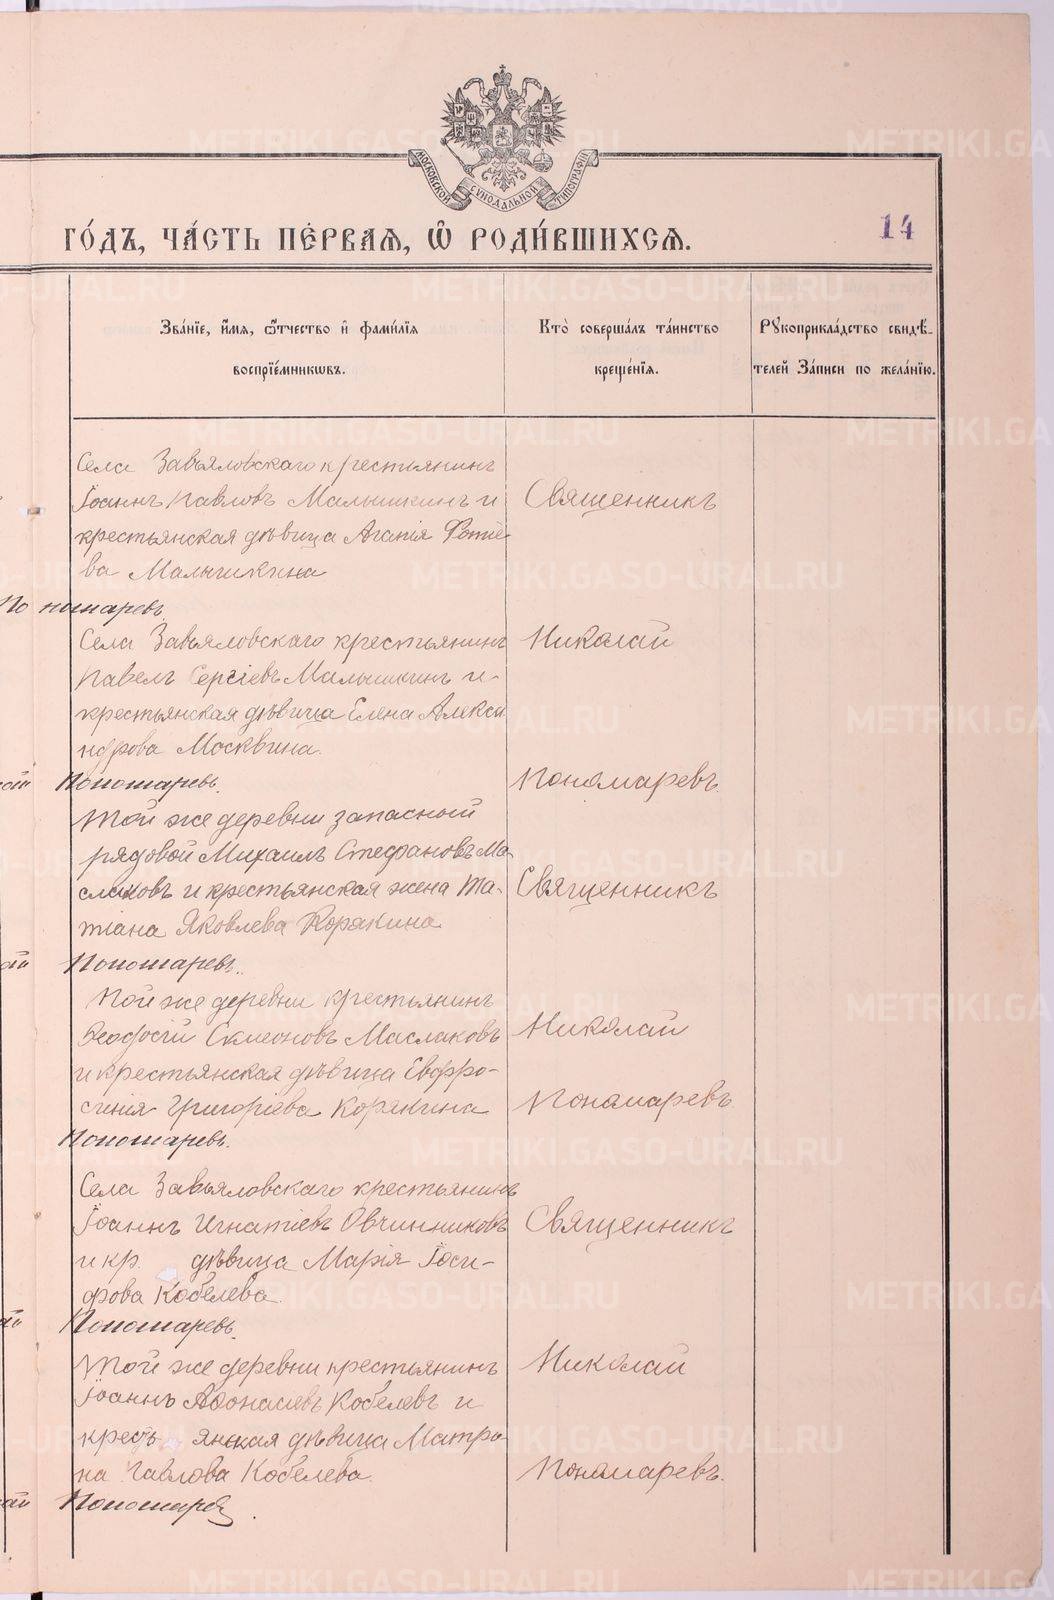 МОСКОВСКОЙ СѴНОДАЛЬНОЙ ТИПОГРАФІИ
ГО́ДЪ, ЧА́СТЬ ПЕ́РВАѦ, Ѡ҆ РОДИ́ВШИХСѦ.
14
Зва́нїе, и҆́мѧ, ѻ҆́тчество и҆ фами́лїѧ
воспрїе́мникѡвъ.
Кто̀ соверша́лъ та́инство
креще́нїѧ.
Рꙋкоприкла́дство свидѣ́-
телей За́писи по жела́нїю.
Села Завьяловскаго крестьянинъ
Іоаннъ Павловъ Малышкинъ и
крестьянская дѣвица Агапія Фотіе-
ва Малышкина
Священникъ
Пономаревъ.
Села Завьяловскаго крестьянинъ
Павелъ Сергіевъ Малышкинъ и
крестьянская дѣвица Елена Алекса
ндрова Москвина.
Николай
Пономаревъ.
Пономаревъ.
Той же деревни запасный
рядовой Михаилъ Стефановъ Ма-
слаковъ и крестьянская жена Та-
тіана Яковлева Корякина
Священникъ
Пономаревъ.
Той же деревни крестьянинъ
Ѳеодосій Симеоновъ Маслаковъ
и крестьянская дѣвица Евфро-
синія Григоріева Корякина
Николай
Пономаревъ
Пономаревъ.
Села Завьяловскаго крестьянинъ
Іоаннъ Игнатіевъ Овчинниковъ
и кр. дѣвица Марія Іоси-
фова Кобелева.
Священникъ
Пономаревъ.
Той же деревни крестьянинъ
Іоаннъ Аѳонасіевъ Кобелевъ и
кресть янская дѣвица Матро-
на Павлова Кобелева.
Николай
Пономаревъ.
Пономаревъ.
METRIKI.GASO-URAL.RU